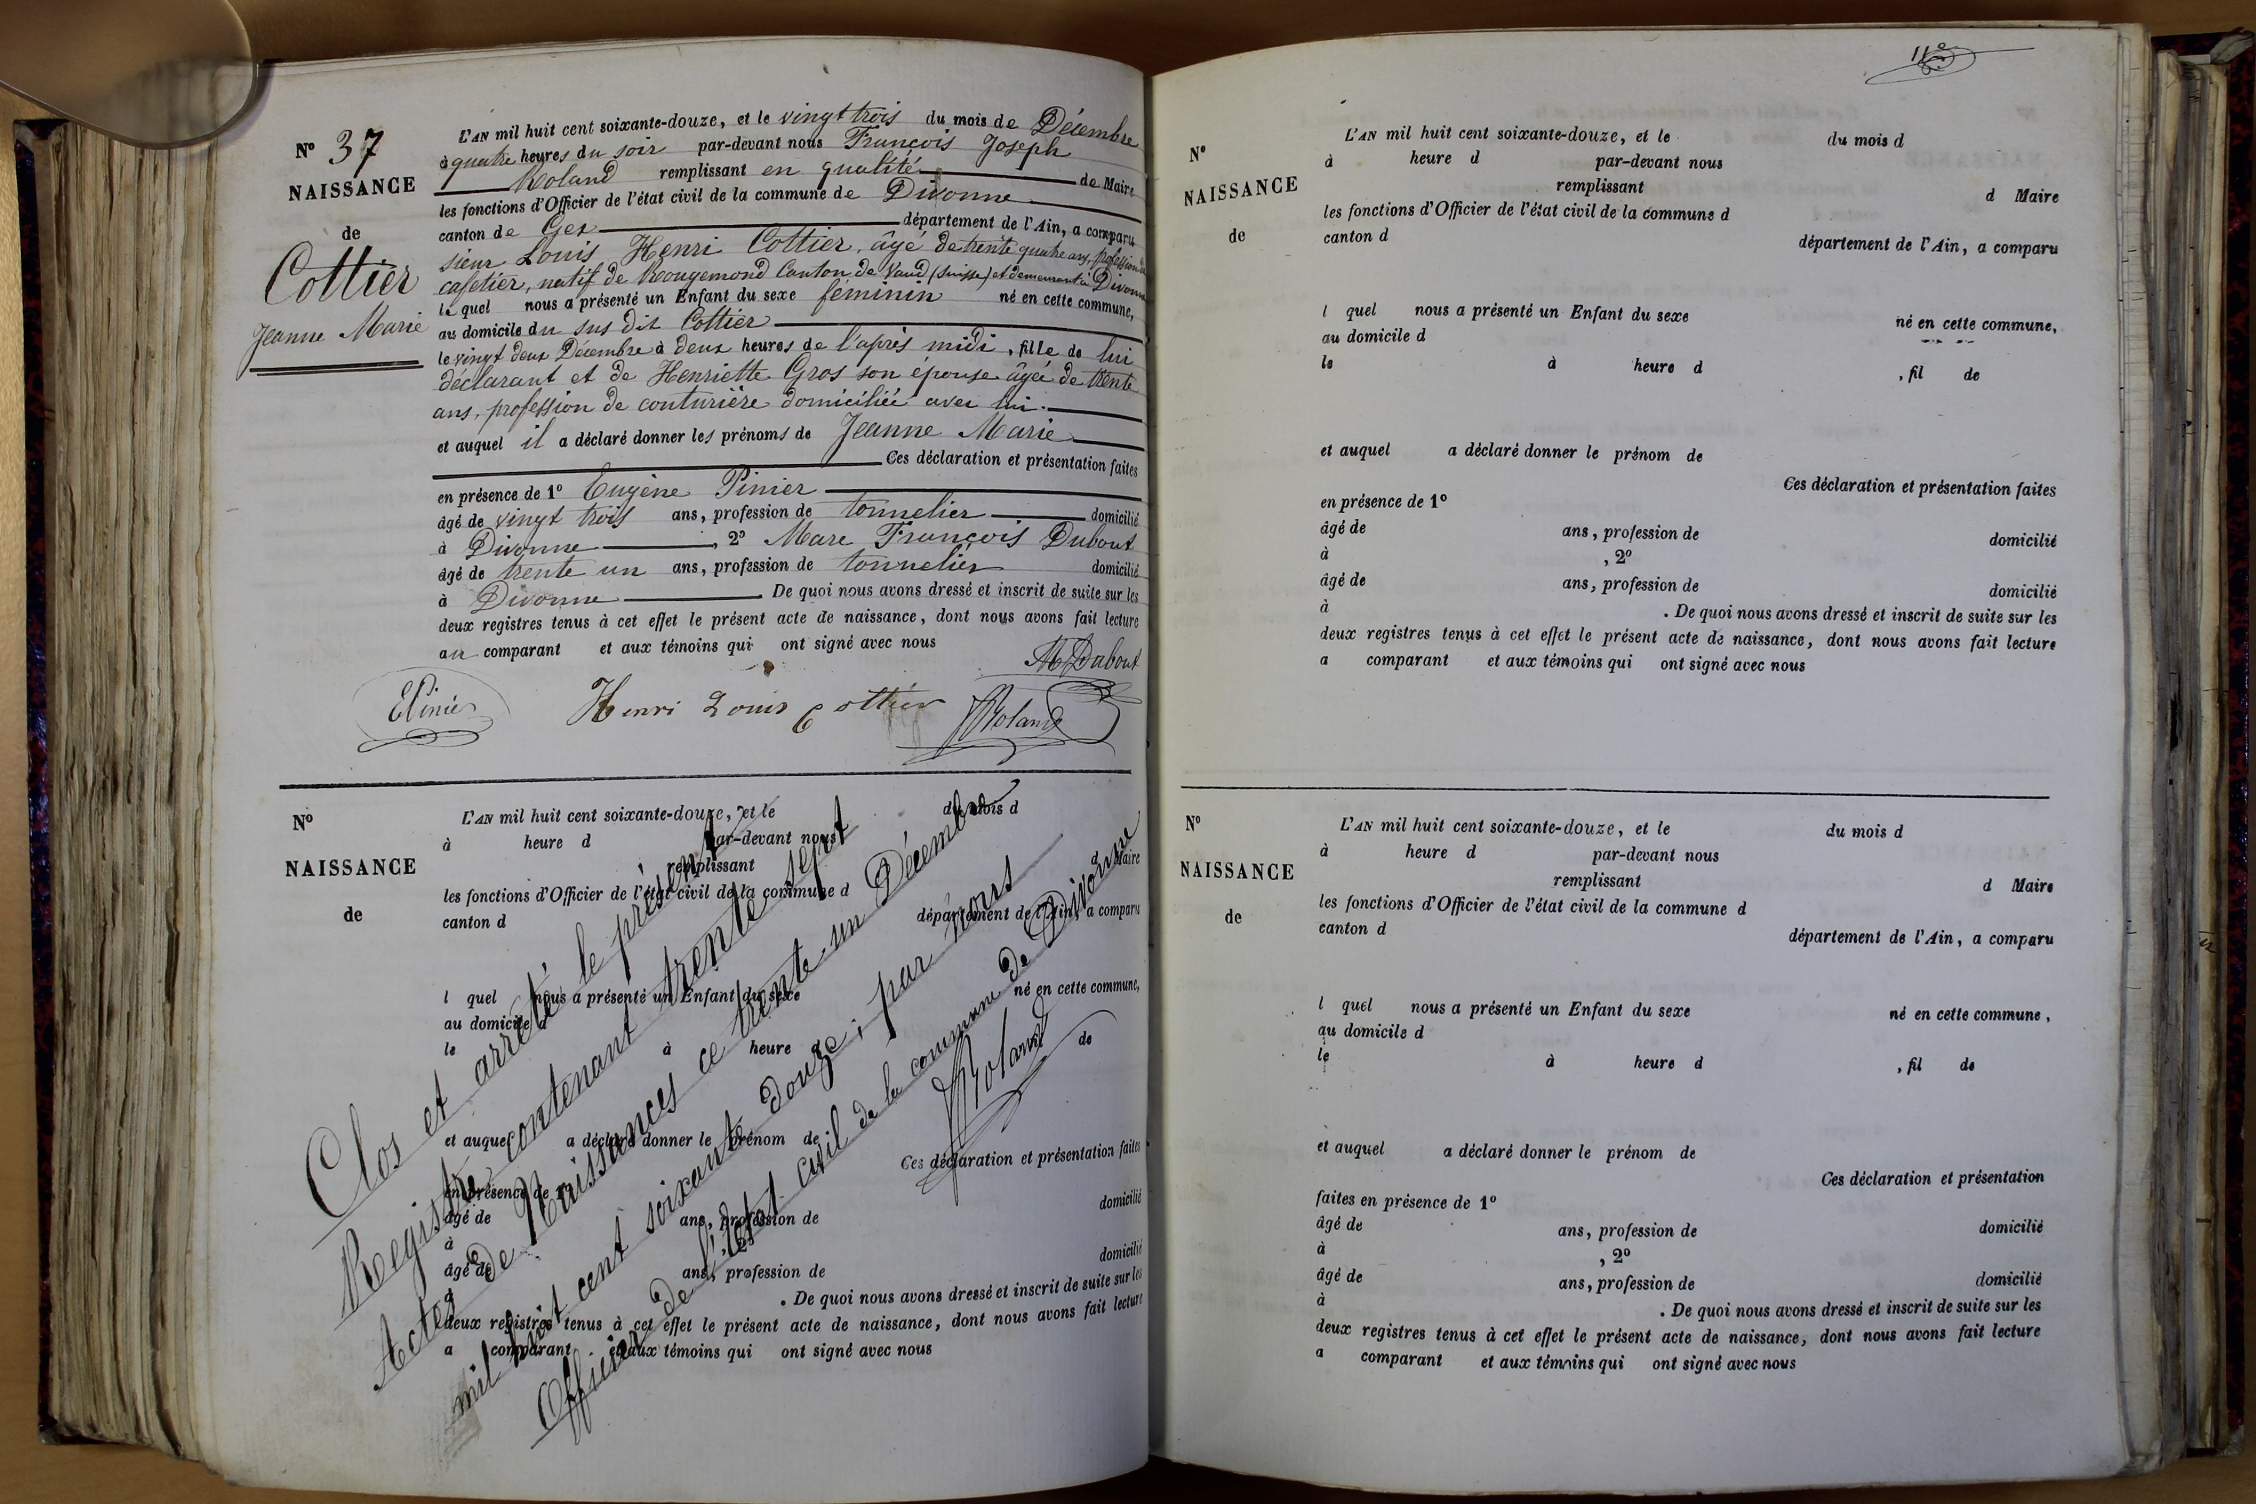 N° 37
NAISSANCE
de
Cottier
Jeanne Marie
L'AN mil huit cent soixante-douze, et le vingt trois du mois de Décembre
à quatre heures du soir par-devant nous François Joseph
Roland remplissant en qualité de Maire
les fonctions d'Officier de l'état civil de la commune de Divonne
canton de Gex département de l'Ain, a comparu
sieur Louis Henri Cottier, âgé de trente quatre ans, profession de
cafetier, natif de Rougemond Canton de Vaud (Suisse) et demeurant à Divonne
le quel nous a présenté un Enfant du sexe féminin né en cette commune,
au domicile du sus dit Cottier
le vingt deux Décembre à deux heures de l'après midi, fille de lui
déclarant et de Henriette Gros son épouse âgée de trente
ans, profession de couturière domiciliée avec lui.
et auquel il a déclaré donner les prénoms de Jeanne Marie
Ces déclaration et présentation faites
en présence de 1° Eugène Pinier
âgé de vingt trois ans, profession de tonnelier domicilié
à Divonne, 2° Marc François Dubout
âgé de trente un ans, profession de tonnelier domicilié
à Divonne De quoi nous avons dressé et inscrit de suite sur les
deux registres tenus à cet effet le présent acte de naissance, dont nous avons fait lecture
au comparant et aux témoins qui ont signé avec nous
M Dubout
EPinier Henri Louis Cottier Roland
N°
NAISSANCE
de
L'AN mil huit cent soixante-douze, et le du mois d
à heure d par-devant nous
remplissant d Maire
les fonctions d'Officier de l'état civil de la commune d
canton d département de l'Ain, a comparu
l quel nous a présenté un Enfant du sexe né en cette commune,
au domicile d
le à heure d de
et auquel a déclaré donner le prénom de
Ces déclaration et présentation faites
en présence de 1°
âgé de ans, profession de domicilié
à
âgé de ans, profession de domicilié
à . De quoi nous avons dressé et inscrit de suite sur les
deux registres tenus à cet effet le présent acte de naissance, dont nous avons fait lecture
a comparant et aux témoins qui ont signé avec nous
Clos et arrêté le présent
Registre contenant trente sept
Actes de Naissances ce trente un Décembre
mil huit cent soixante douze, par nous
Officier de l'état civil de la commune de Divonne
Roland
N°
NAISSANCE
de
L'AN mil huit cent soixante-douze, et le du mois d
à heure d par-devant nous
remplissant d Maire
les fonctions d'Officier de l'état civil de la commune d
canton d département de l'Ain, a comparu
l quel nous a présenté un Enfant du sexe né en cette commune,
au domicile d
le à heure d , fil de
et auquel a déclaré donner le prénom de
Ces déclaration et présentation faites
en présence de 1°
âgé de ans, profession de domicilié
à , 2°
âgé de ans, profession de domicilié
à . De quoi nous avons dressé et inscrit de suite sur les
deux registres tenus à cet effet le présent acte de naissance, dont nous avons fait lecture
a comparant et aux témoins qui ont signé avec nous
N°
NAISSANCE
de
L'AN mil huit cent soixante-douze, et le du mois d
à heure d par-devant nous
remplissant d Maire
les fonctions d'Officier de l'état civil de la commune d
canton d département de l'Ain, a comparu
l quel nous a présenté un Enfant du sexe né en cette commune,
au domicile d
le à heure d , fil de
et auquel a déclaré donner le prénom de
Ces déclaration et présentation
faites en présence de 1°
âgé de ans, profession de domicilié
à , 2°
âgé de ans, profession de domicilié
à . De quoi nous avons dressé et inscrit de suite sur les
deux registres tenus à cet effet le présent acte de naissance, dont nous avons fait lecture
a comparant et aux témoins qui ont signé avec nous